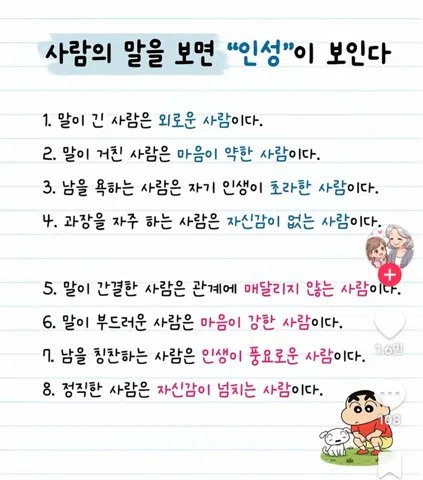 사람의 말을 보면 “인성”이 보인다
1. 말이 긴 사람은 외로운 사람이다.
2. 말이 거친 사람은 마음이 약한 사람이다.
3. 남을 욕하는 사람은 자기 인생이 초라한 사람이다.
4. 과장을 자주 하는 사람은 자신감이 없는 사람이다.
5. 말이 간결한 사람은 관계에 매달리지 않는 사람이다.
6. 말이 부드러운 사람은 마음이 강한 사람이다.
7. 남을 칭찬하는 사람은 인생이 풍요로운 사람이다.
8. 정직한 사람은 자신감이 넘치는 사람이다.
1.6만
108